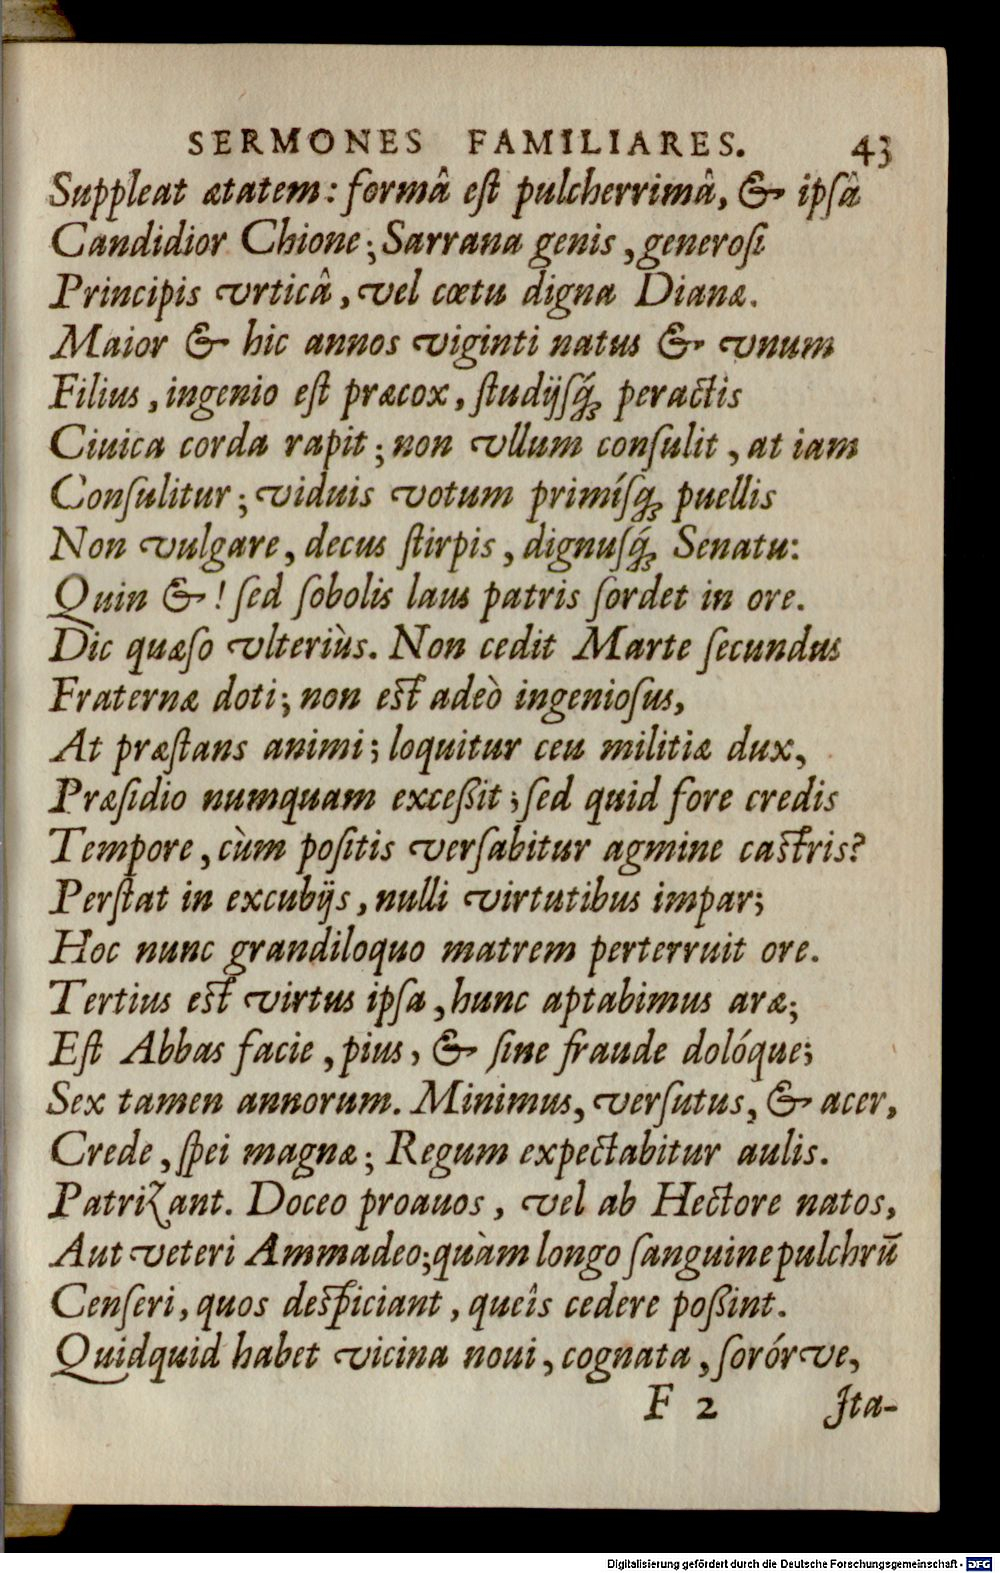 SERMONES FAMILIARES. 43
Suppleat ætatem: formâ eſt pulcherrimâ, & ipſâ
Candidior Chione; Sarrana genis, generoſi
Principis vrticâ, vel cœtu digna Dianæ.
Maior & hic annos viginti natus & vnum
Filius, ingenio eſt præcox, ſtudijſq́ꝫ peractis
Ciuica corda rapit; non vllum conſulit, at iam
Conſulitur; viduis votum primíſqꝫ puellis
Non vulgare, decus ſtirpis, dignuſq́ꝫ Senatu:
Quin &! ſed ſobolis laus patris ſordet in ore.
Dic quæſo vlteriùs. Non cedit Marte ſecundus
Fraternæ doti; non eſt adeò ingenioſus,
At præſtans animi; loquitur ceu militiæ dux,
Præſidio numquam exceßit; ſed quid fore credis
Tempore, cùm poſitis verſabitur agmine caſtris?
Perſtat in excubijs, nulli virtutibus impar;
Hoc nunc grandiloquo matrem perterruit ore.
Tertius eſt virtus ipſa, hunc aptabimus aræ;
Eſt Abbas facie, pius, & ſine fraude dolóque;
Sex tamen annorum. Minimus, verſutus, & acer,
Crede, ſpei magnæ; Regum expectabitur aulis.
Patrizant. Doceo proauos, vel ab Hectore natos,
Aut veteri Ammadeo; quàm longo ſanguine pulchrū
Cenſeri, quos deſpiciant, queîs cedere poßint.
Quidquid habet vicina noui, cognata, ſorórve,
F 2 Ita-
Digitalisierung gefördert durch die Deutsche Forschungsgemeinschaft - DFG